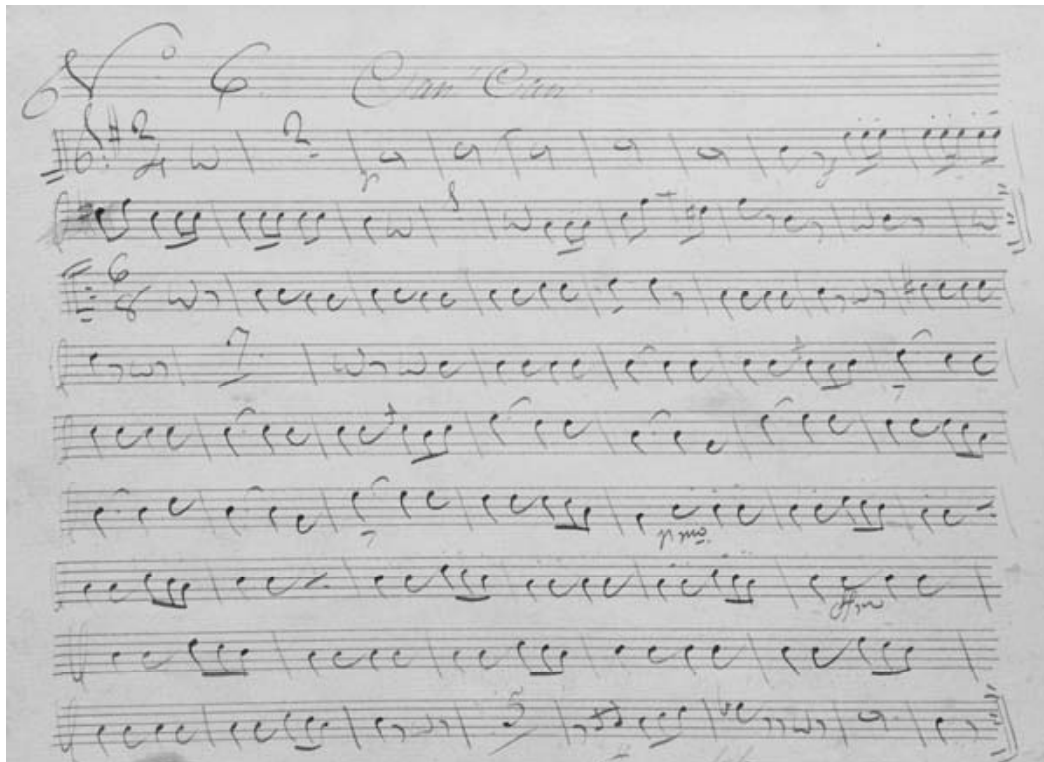 Nº 6. Can Can
2 2
4
6
8
7
p mo.
ffmo
5